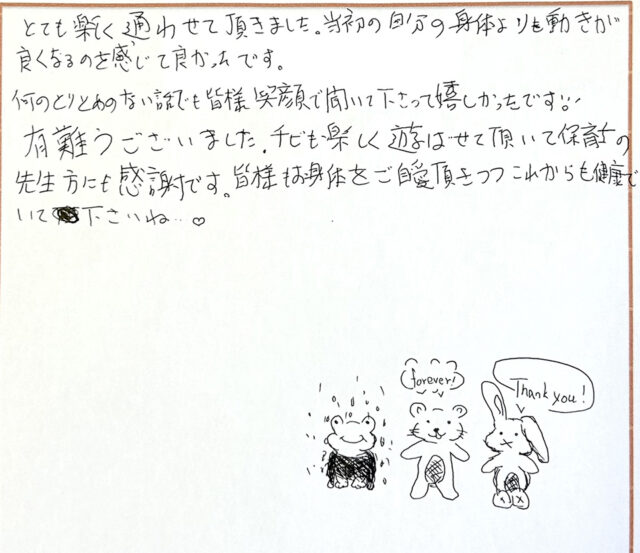 とても楽しく通わせて頂きました。当初の自分の身体よりも動きが
良くなるのを感じて良かったです。
何のとりとめのない話でも皆様笑顔で聞いて下さって嬉しかったです!!
有難うございました。チビも楽しく遊ばせて頂いて保育士の
先生方にも感謝です。皆様もお身体をご自愛頂きつつこれからも健康で
いて下さいね…♡
forever!
Thank you!